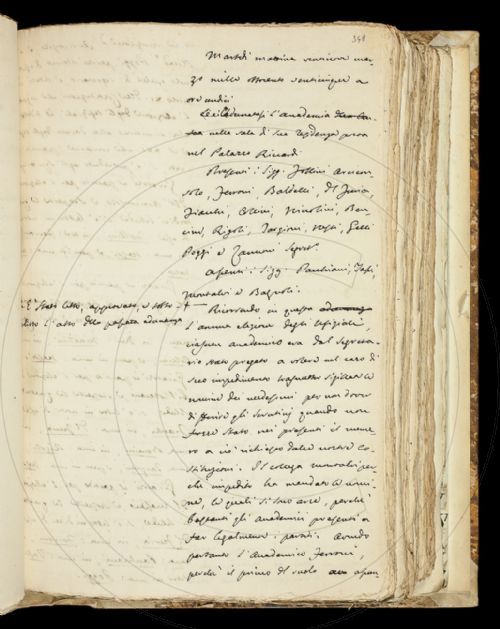 341
Martedì mattina ventinove mar-
zo mille ottocento venticinque a
ore undici
l'Accademia
nelle sale di sua residenza
nel Palazzo Riccardi
Presenti: Sigg. Follini Arcicon-
solo, Ferroni, Baldelli, Del Furia,
Fiacchi, Niccolini, Ben-
cini, Rigoli, Targioni, Nesti, Gelli
Poggi e Zannoni Segret.º
Assenti: Sigg. Pauchiani,
Montalvi e Bagnoli.
È stato letto, approvato, e sotto-
l'atto della passata adunanza
Ricorrendo in questa adunanza
l'annua elezione degli Ufiziali,
ciascun accademico era dal Segreta-
rio stato pregato a volere nel caso di
suo impedimento trasmetter sigillate le
nomine dei medesimi per non dover
differire gli scrutinj quando non
fosse stato nei presenti il nume-
ro a ciò richiesto dalle nostre Co-
stituzioni. Il collega Montalvi per-
chè impedito ha mandato le nomi-
ne, le quali si sono arse, perchè
bastanti gli Accademici presenti a
far legalmente i partiti. Avendo
pertanto l'Accademico Ferroni,
perchè il primo del ruolo